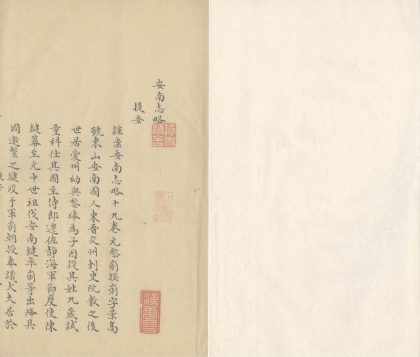 安南志略
提要
謹案安南志略十九卷元黎崱撰崱字景高
號東山安南國人東晉交州刺史阮敷之後
世居愛州幼與黎琫為子因從其姓九歲試
童科仕其國至侍郎遷佐靜海軍節度使陳
鍵幕至元中世祖伐安南鍵率崱等出降其
國邀擊之鍵歿于軍崱朝授奉議大夫居於